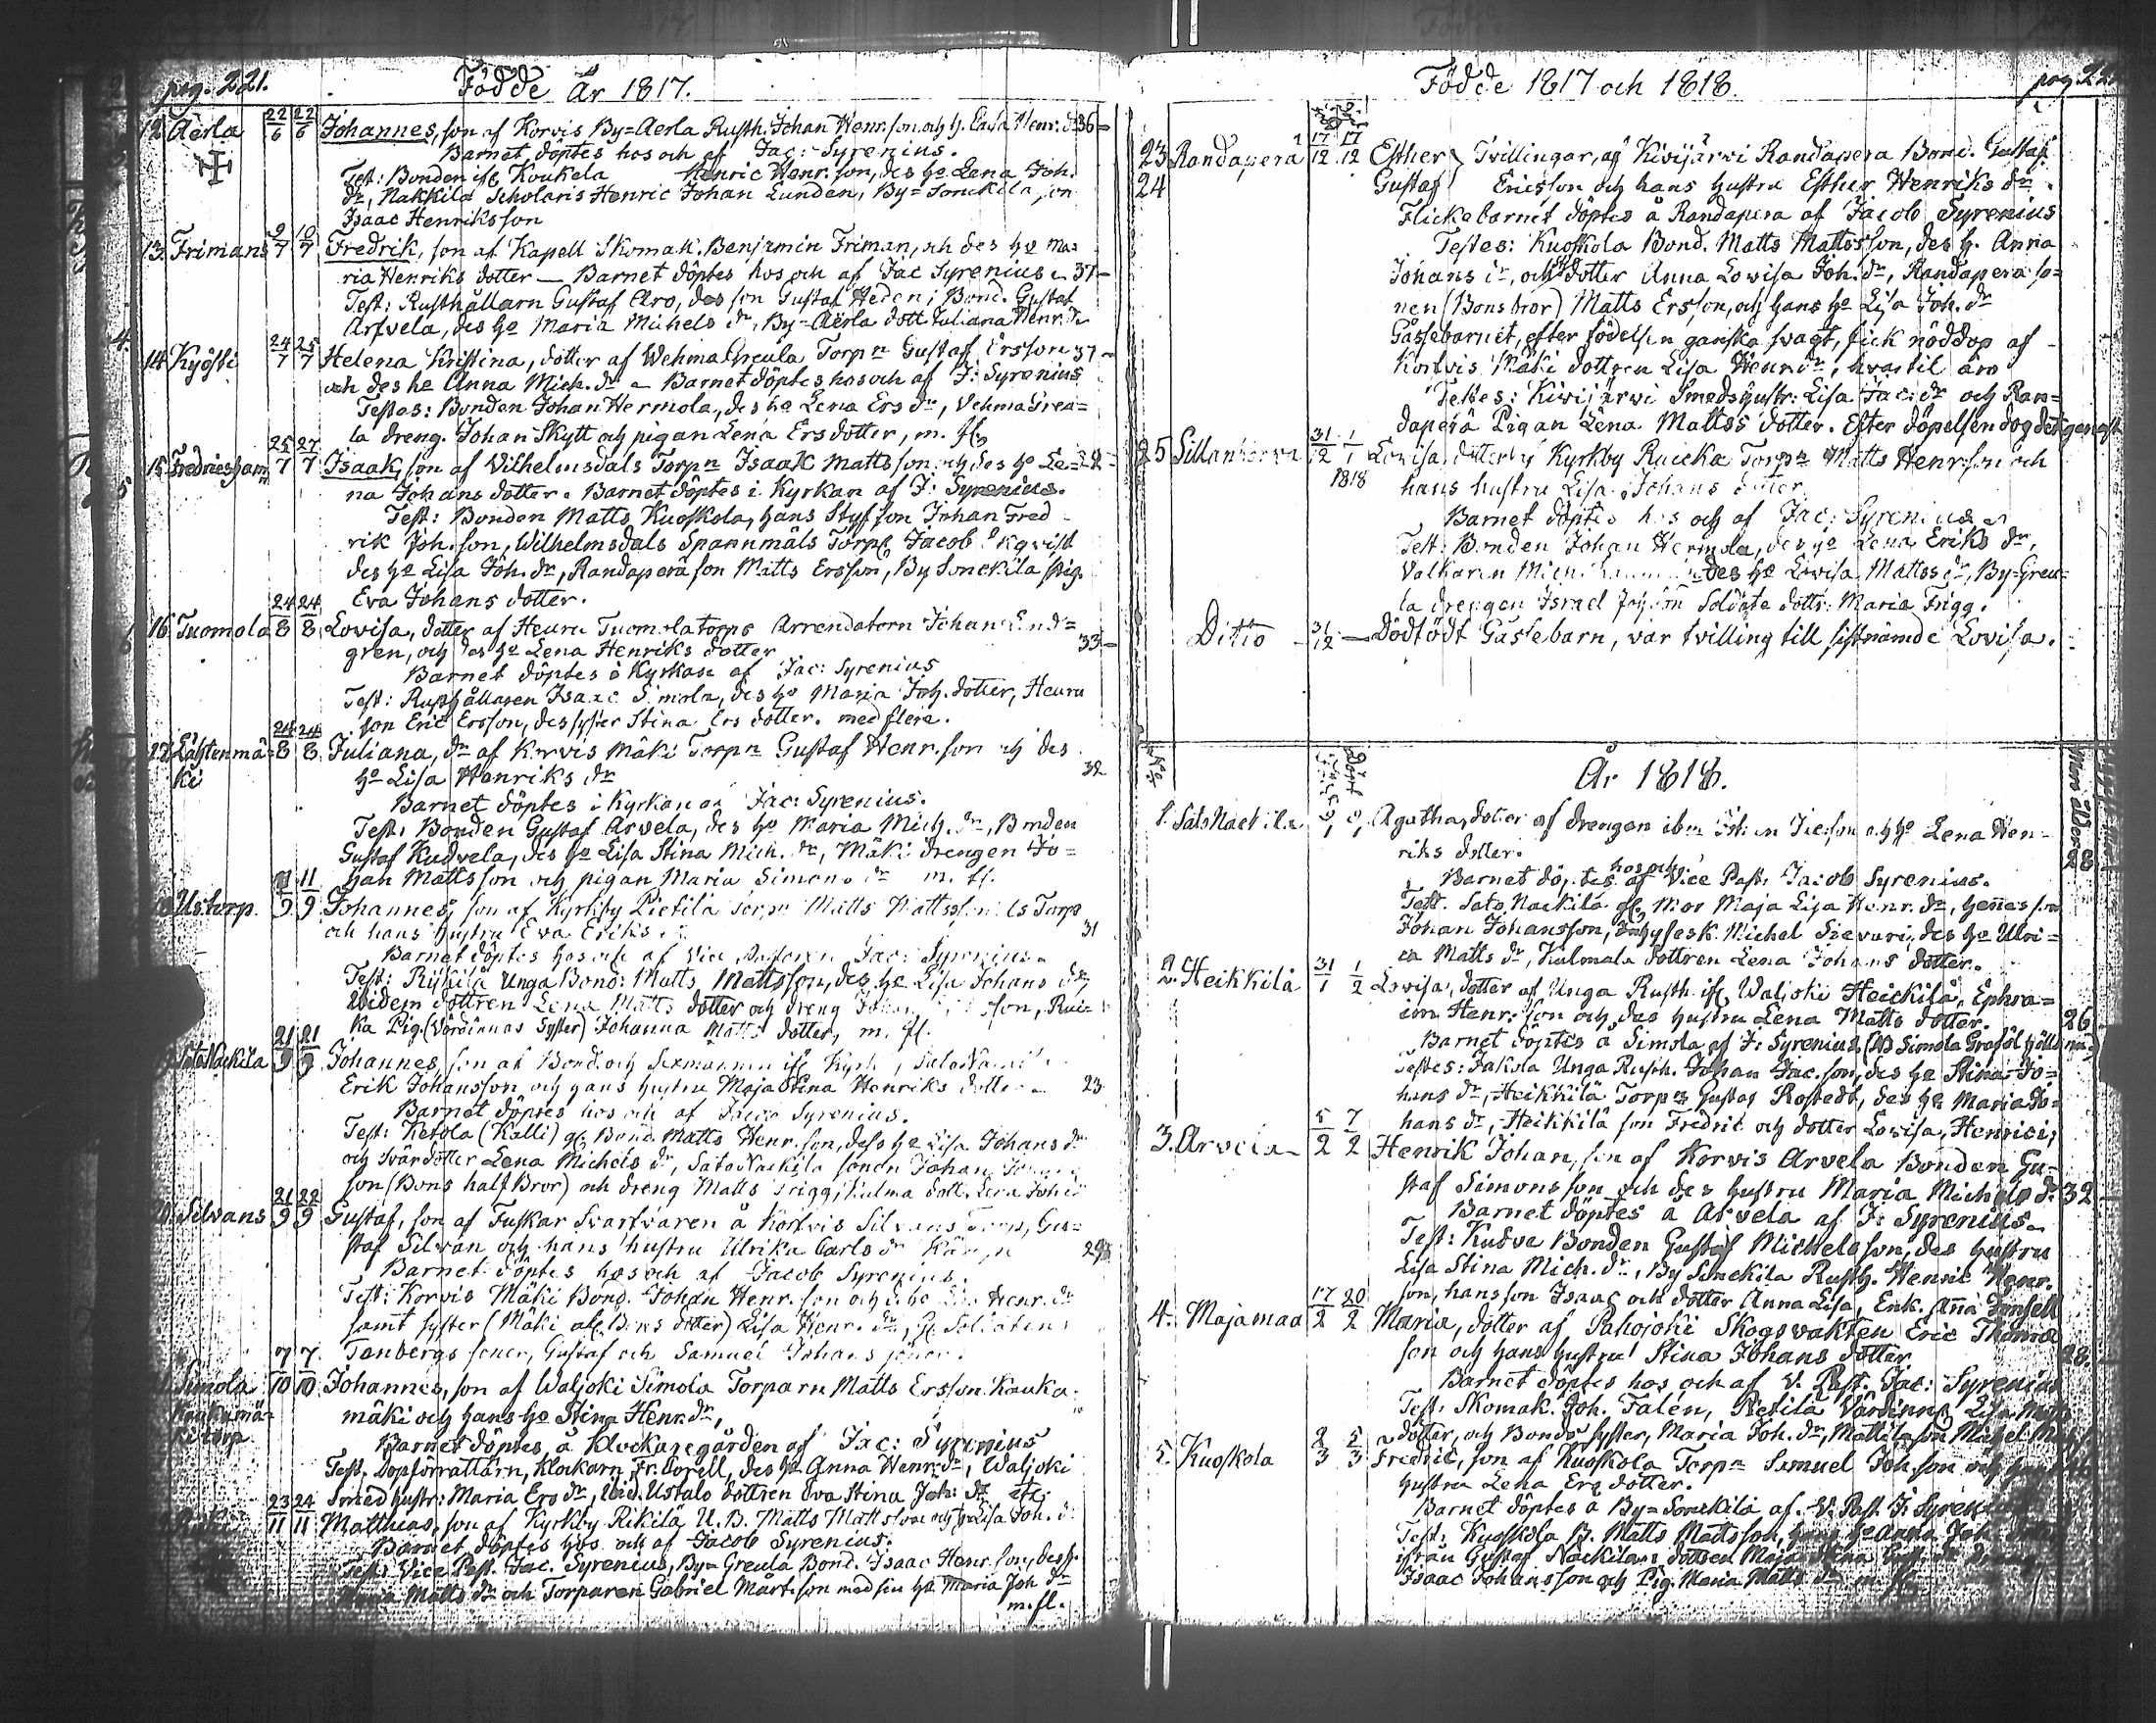 pag. 221.
Födde År 1817.
12 Aerla 22/6 22/6 Johannes, son af Korvis By=Aerla Rusth. Johan Henr.son och h. Caisa Henr. d. 36
Barnet döptes hos och af Jac: Syrenius.
Test: Bonden Koukela Henric Henr.son, des he Lena Joh.
dr, Nakkila Scholaris Henric Johan Lunden, By=Sonckila son
Isaac Henriksson
13. Frimans 9/7 10/7 Fredrik, son af Kapell Skomak. Benjamin Friman, och des he Ma=
ria Henriks dotter — Barnet döptes hos och af Jac Syrenius 37
Test: Rusthållarn Gustaf Aro, des son Gustaf Heden; Bond. Gustaf
Arfvela, des he Maria Michels dr, By=Aerla dott Juliana Henr. dr
14 Kyösti 24/7 25/7 Helena Kristina, dotter af Wehma Greula Torpn Gustaf Ersson 37
och des he Anna Mich. dr — Barnet döptes hos och af J: Syrenius
Testes: Bonden Johan Hermola, des he Lena Ers dr, Vehma Greu=
la dreng. Johan Skytt och pigan Lena Ersdotter, m. fl.
15 Fredricsham 25/7 27/7 Isaak, son af Vilhelmsdals Torpn Isaak Mattsson och des he Le=
na Johans dotter. Barnet döptes i Kyrkan af J: Syrenius.
Test: Bonden Matts Kuoskola, hans Styfson Johan Fred
rik Joh.son, Wilhelmsdals Spannmåls Torp. Jacob Ekqvist
des he Lisa Joh. dr, Randaperä son Matts Ersson, By Sonckila pig.
Eva Johans dotter.
16 Tuomola 24/8 24/8 Lovisa, dotter af Heuru Tuomola torps Arrendatorn Johan Lind=
gren, och des he Lena Henriks dotter 33
Barnet döptes i Kyrkan af Jac: Syrenius
Test: Rusthållaren Isaac Simola, des he Maria Joh. dotter, Heuru
son Eric Ersson, des syster Stina Ers dotter. med flere.
17 Lähtenmä=ki 24/8 24/8 Juliana, dr af Korvis Mäki Torpn Gustaf Henr.son och des
he Lisa Henriks dr 32
Barnet döptes i Kyrkan af Jac: Syrenius.
Test. Bonden Gustaf Arvela, des he Maria Mich. dr, Bonden
Gustaf Kudvela, des he Lisa Stina Mich. dr, Mäki drengen Jo=
han Mattsson och pigan Maria Simons dr m. fl.
Ustorp. 11/9 11/9 Johannes, son af Kyrkby Pietilä Torpn Matts Mattsson Us Torp
och hans hustru Eva Eriks 31
Barnet döptes hos och af Vice Pastoren Jac: Syrenius
Test: Rijkilä Unga Bond: Matts Mattsson, des he Lisa Johans dr
ibidem dottren Lena Matts dotter och dreng son, Rui=
ka Pig. (Värdinnas Syster) Johanna Matts dotter, m. fl.
Sato Nackila 21/9 21/9 Johannes, son af Bond. och Sexmannen Kyrk, Sato Nacki
Erik Johansson och hans hustru Maja Stina Henriks dotter 23
Barnet döptes hos och af Jacob Syrenius.
Test: Ketola (Kalli) Bond. Matts Henr.son, des he Lisa Johans dr
och Svärdotter Lena Michels dr, Sato Nackila sonen Johan
son (Bons half Bror) och dreng Matts Trigg, Kulma dott. Lena Joh. dr
20. Silvans 21/9 22/9 Gustaf, son af Fuskar Svarfvaren å Korfvis Silvans Torp, Gu=
staf Silvan och hans hustru Ulrika Carls dr 29
Barnet döptes hos och af Jacob Syrenius.
Test: Korvis Mäki Bond. Johan Henr.son och Henr. dr
samt syster (Mäki Bons dotter) Lisa Henr. dr, Soldatens
Tanbergs söner, Gustaf och Samuel Johans söner.
Simola Kaukamä=ki torp 7/10 7/10 Johannes, son af Waljoki Simola Torparn Matts Ersson Kauka
mäki och hans he Stina Henr. dr,
Barnet döptes å Klockaregården af Jac: Syrenius
Test. Dopförrattarn, Klockarn Fr. Corell, des he Anna Henr. dr, Waljoki
Smed hustr: Maria Ers dr, Ustalo dottren Eva Stina Joh: dr etc.
23/11 24/11 Matthias, son af Kyrkby Rikilä U. B. Matts Mattsson och he Lisa Joh. d.
Barnet döptes hos och af Jacob Syrenius.
Test: Vice Past. Jac. Syrenius, By=Greula Bond. Isaac Henr.son, des h.
Maria Matts dr och Torparen Gabriel Mart.son med sin he Maria Joh dr
m. fl.
Födde 1817 och 1818.
pag. 22
23 24 Randaperä 17/12 17/12 Esther Gustaf Tvillingar, af Kivijärvi Randapera Bond. Gustaf
Ericsson och hans hustru Esther Henriks dr.
Flickebarnet döptes å Randapera af Jacob Syrenius
Testes: Kuoskola Bond. Matts Mattsson, des h. Anna
Johans dr, och dotter Anna Lovisa Joh. dr, Randapera so=
nen (Bons bror) Matts Ersson, och hans he Lisa Joh. dr
Gåssebarnet, efter födelsen ganska svagt, fick nöddop af
Korvis Mäki dottren Lisa Henr. dr, hvartil äro
Testes: Kivijärvi Smeds hustr: Lisa Jac: dr och Ran=
daperä Pigan Lena Matts dotter. Efter döpelsen dog det genast
25 Sillankorva 31/12 1/1 1818 Lovisa, dotter af Kyrkby Ruicka Torpn Matts Henr.son och
hans hustru Lisa Johans dotter
Barnet döptes hos och af Jac: Syrenius
Test: Bonden Johan Hermola, des he Lena Eriks dr,
Valkaren Mich. des he Lovisa Matts dr, By=Greu=
la drengen Israel Soldate dottr: Maria Frigg.
Ditto 31/12 — Dödfödt Gåssebarn, var tvilling till sistnämde Lovisa.
År 1818.
Döpt
Mors Ålder
1. Sato Nackila Agatha, dotter af drengen ibm Johan och he Lena Hen=
riks dotter. 28
Barnet döptes hos och af Vice Past. Jacob Syrenius.
Test. Sato Nackila Mor Maja Lisa Henr. dr, hennes son
Johan Johansson, Inhysesk. Michel Sievari, des he Ulri=
ca Matts dr, Kulmala dottren Lena Johans dotter.
2. Heikkilä 31/1 1/2 Lovisa, dotter af Unga Rusth. Waljoki Heickilä, Ephra=
im Henr.son och des hustru Lena Matts dotter. 26
Barnet döptes å Simola af J: Syrenius, (NB Simola Grafölhölls
Testes: Jakola Unga Rusth. Johan Jac.son, des he Stina Jo=
hans dr, Heikkilä Torpn Gustaf Rostedt, des he Maria Jo=
hans dr, Heikkilä son Fredric och dotter Lovisa, Henrici;
3. Arvela 5/2 7/2 Henrik Johan, son af Korvis Arvela Bonden Gu=
staf Simonsson och des hustru Maria Michels dr 32
Barnet döptes å Arvela af J: Syrenius
Test: Kudva Bonden Gustaf Michelsson, des hustru
Lisa Stina Mich. dr, By Sonckila Rusth. Henric Henr.
son, hans son Isaac och dotter Anna Lisa, Enk. Anna Jansell
4. Majamaa 17/2 20/2 Maria, dotter af Pahojoki Skogsvakten Eric Thomæ
son och hans hustru Stina Johans dotter 28.
Barnet döptes hos och af V. Past. Jac: Syrenius
Test. Skomak. Joh. Falen, Pietilä Värdinna Lisa Matts
dotter, och Bonds syster, Maria Joh. dr, Mattila son Michel
5. Kuoskola 2/3 5/3 Fredric, son af Kuoskola Torpn Samuel Joh.son och hans
hustru Lena Ers dotter.
Barnet döptes å By=Sonckila af V. Past. J: Syrenius
Test: Kuoskola B. Matts Mattsson, hans he Anna Joh.
ifrån Gustaf Nackilas dottren Maja Stina Gust. dr
Isaac Johansson och Pig. Maria Matts dr m. fl.